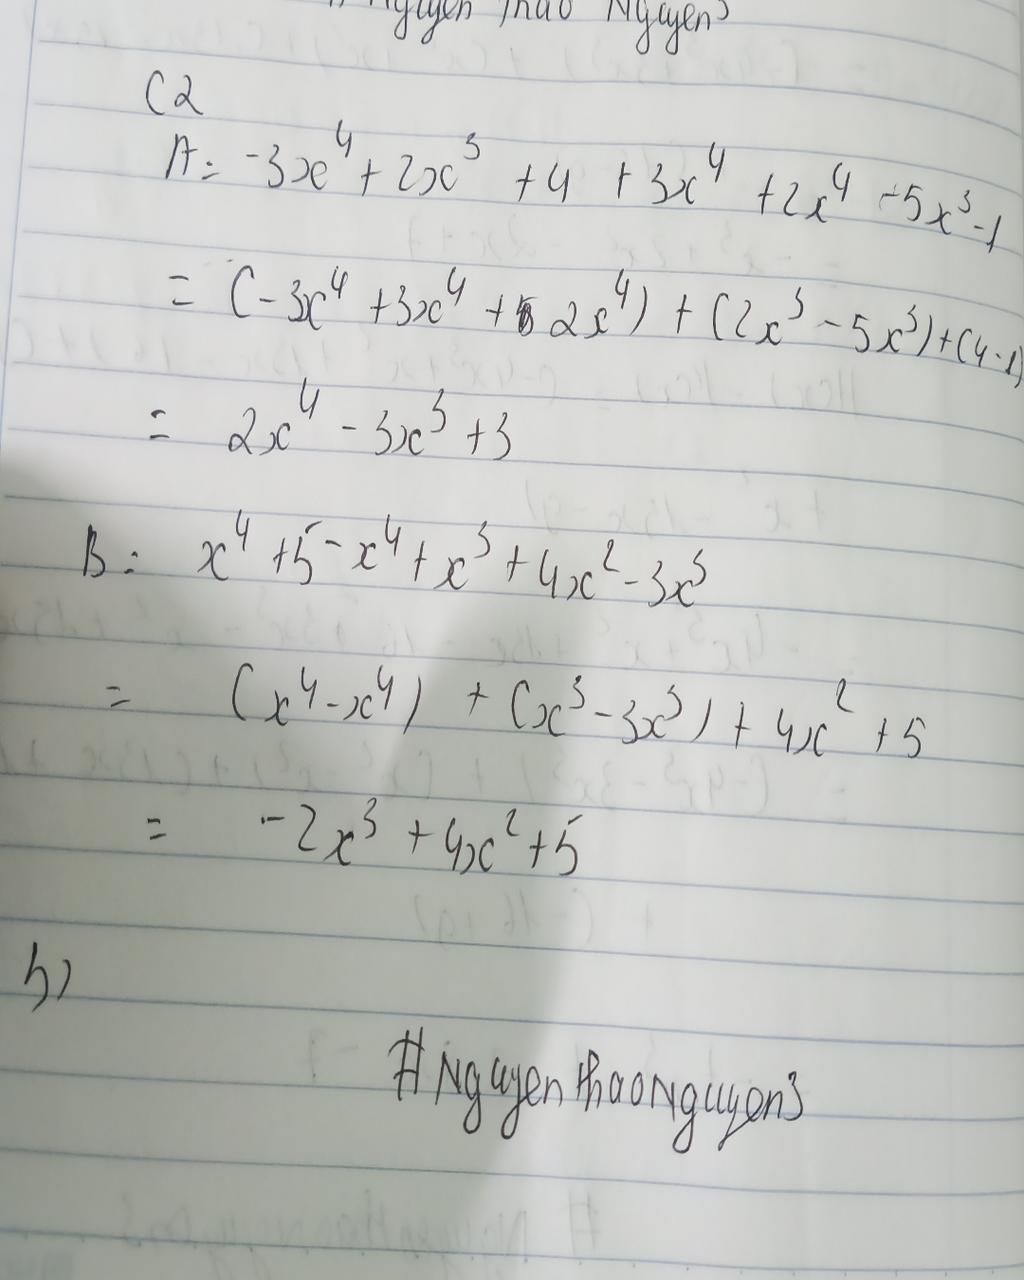 Nguyen Thao Nguyen3
C2
A = -3x⁴ + 2x³ + 4 + 3x⁴ + 2x⁴ - 5x³ - 1
= (-3x⁴ + 3x⁴ + 2x⁴) + (2x³ - 5x³) + (4-1)
= 2x⁴ - 3x³ + 3
B = x⁴ + 5 - x⁴ + x³ + 4x² - 3x³
= (x⁴ - x⁴) + (x³ - 3x³) + 4x² + 5
= -2x³ + 4x² + 5
b)
#NguyenthaoNguyen3